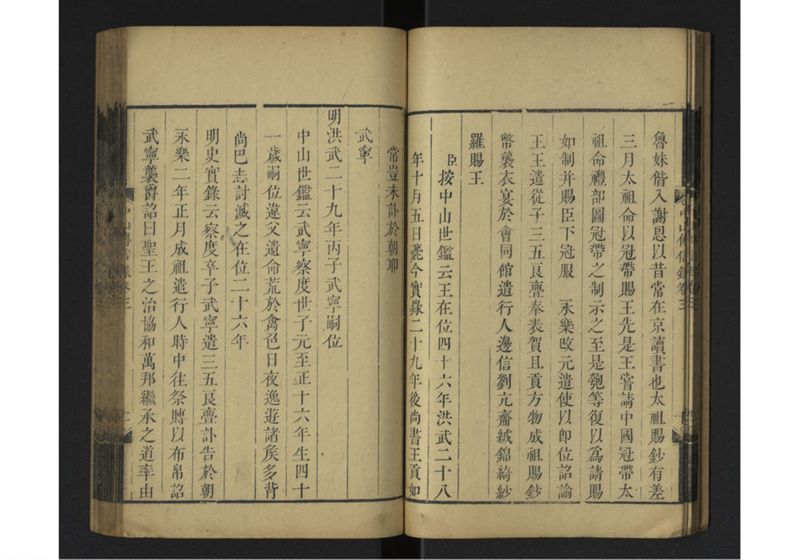 魯妹偕入謝恩以昔常在京讀書也太祖賜鈔有差
三月太祖命以冠帶賜王先是王嘗請中國冠帶太
祖命禮部圖冠帶之制示之至是匏等復以為請賜
如制并賜臣下冠服 永樂改元遣使以即位詔諭
王王遣從子三五良亹奉表賀且貢方物成祖賜鈔
幣襲衣宴於會同館遣行人邊信劉亢齎絨錦綺紗
羅賜王
臣按中山世鑑云王在位四十六年洪武二十八
年十月五日薨今實錄二十九年後尚書王貢如
常豈未訃於朝耶
武寧
明洪武二十九年丙子武寧嗣位
中山世鑑云武寧察度世子元至正十六年生四十
一歲嗣位違父遺命荒於禽色日夜逸遊諸矦多背
尚巴志討滅之在位二十六年
明史實錄云察度卒子武寧遣三五良亹訃告於朝
永樂二年正月成祖遣行人時中往祭賻以布帛詔
武寧襲爵詔曰聖王之治協和萬邦繼承之道率由
中山傳信錄卷三